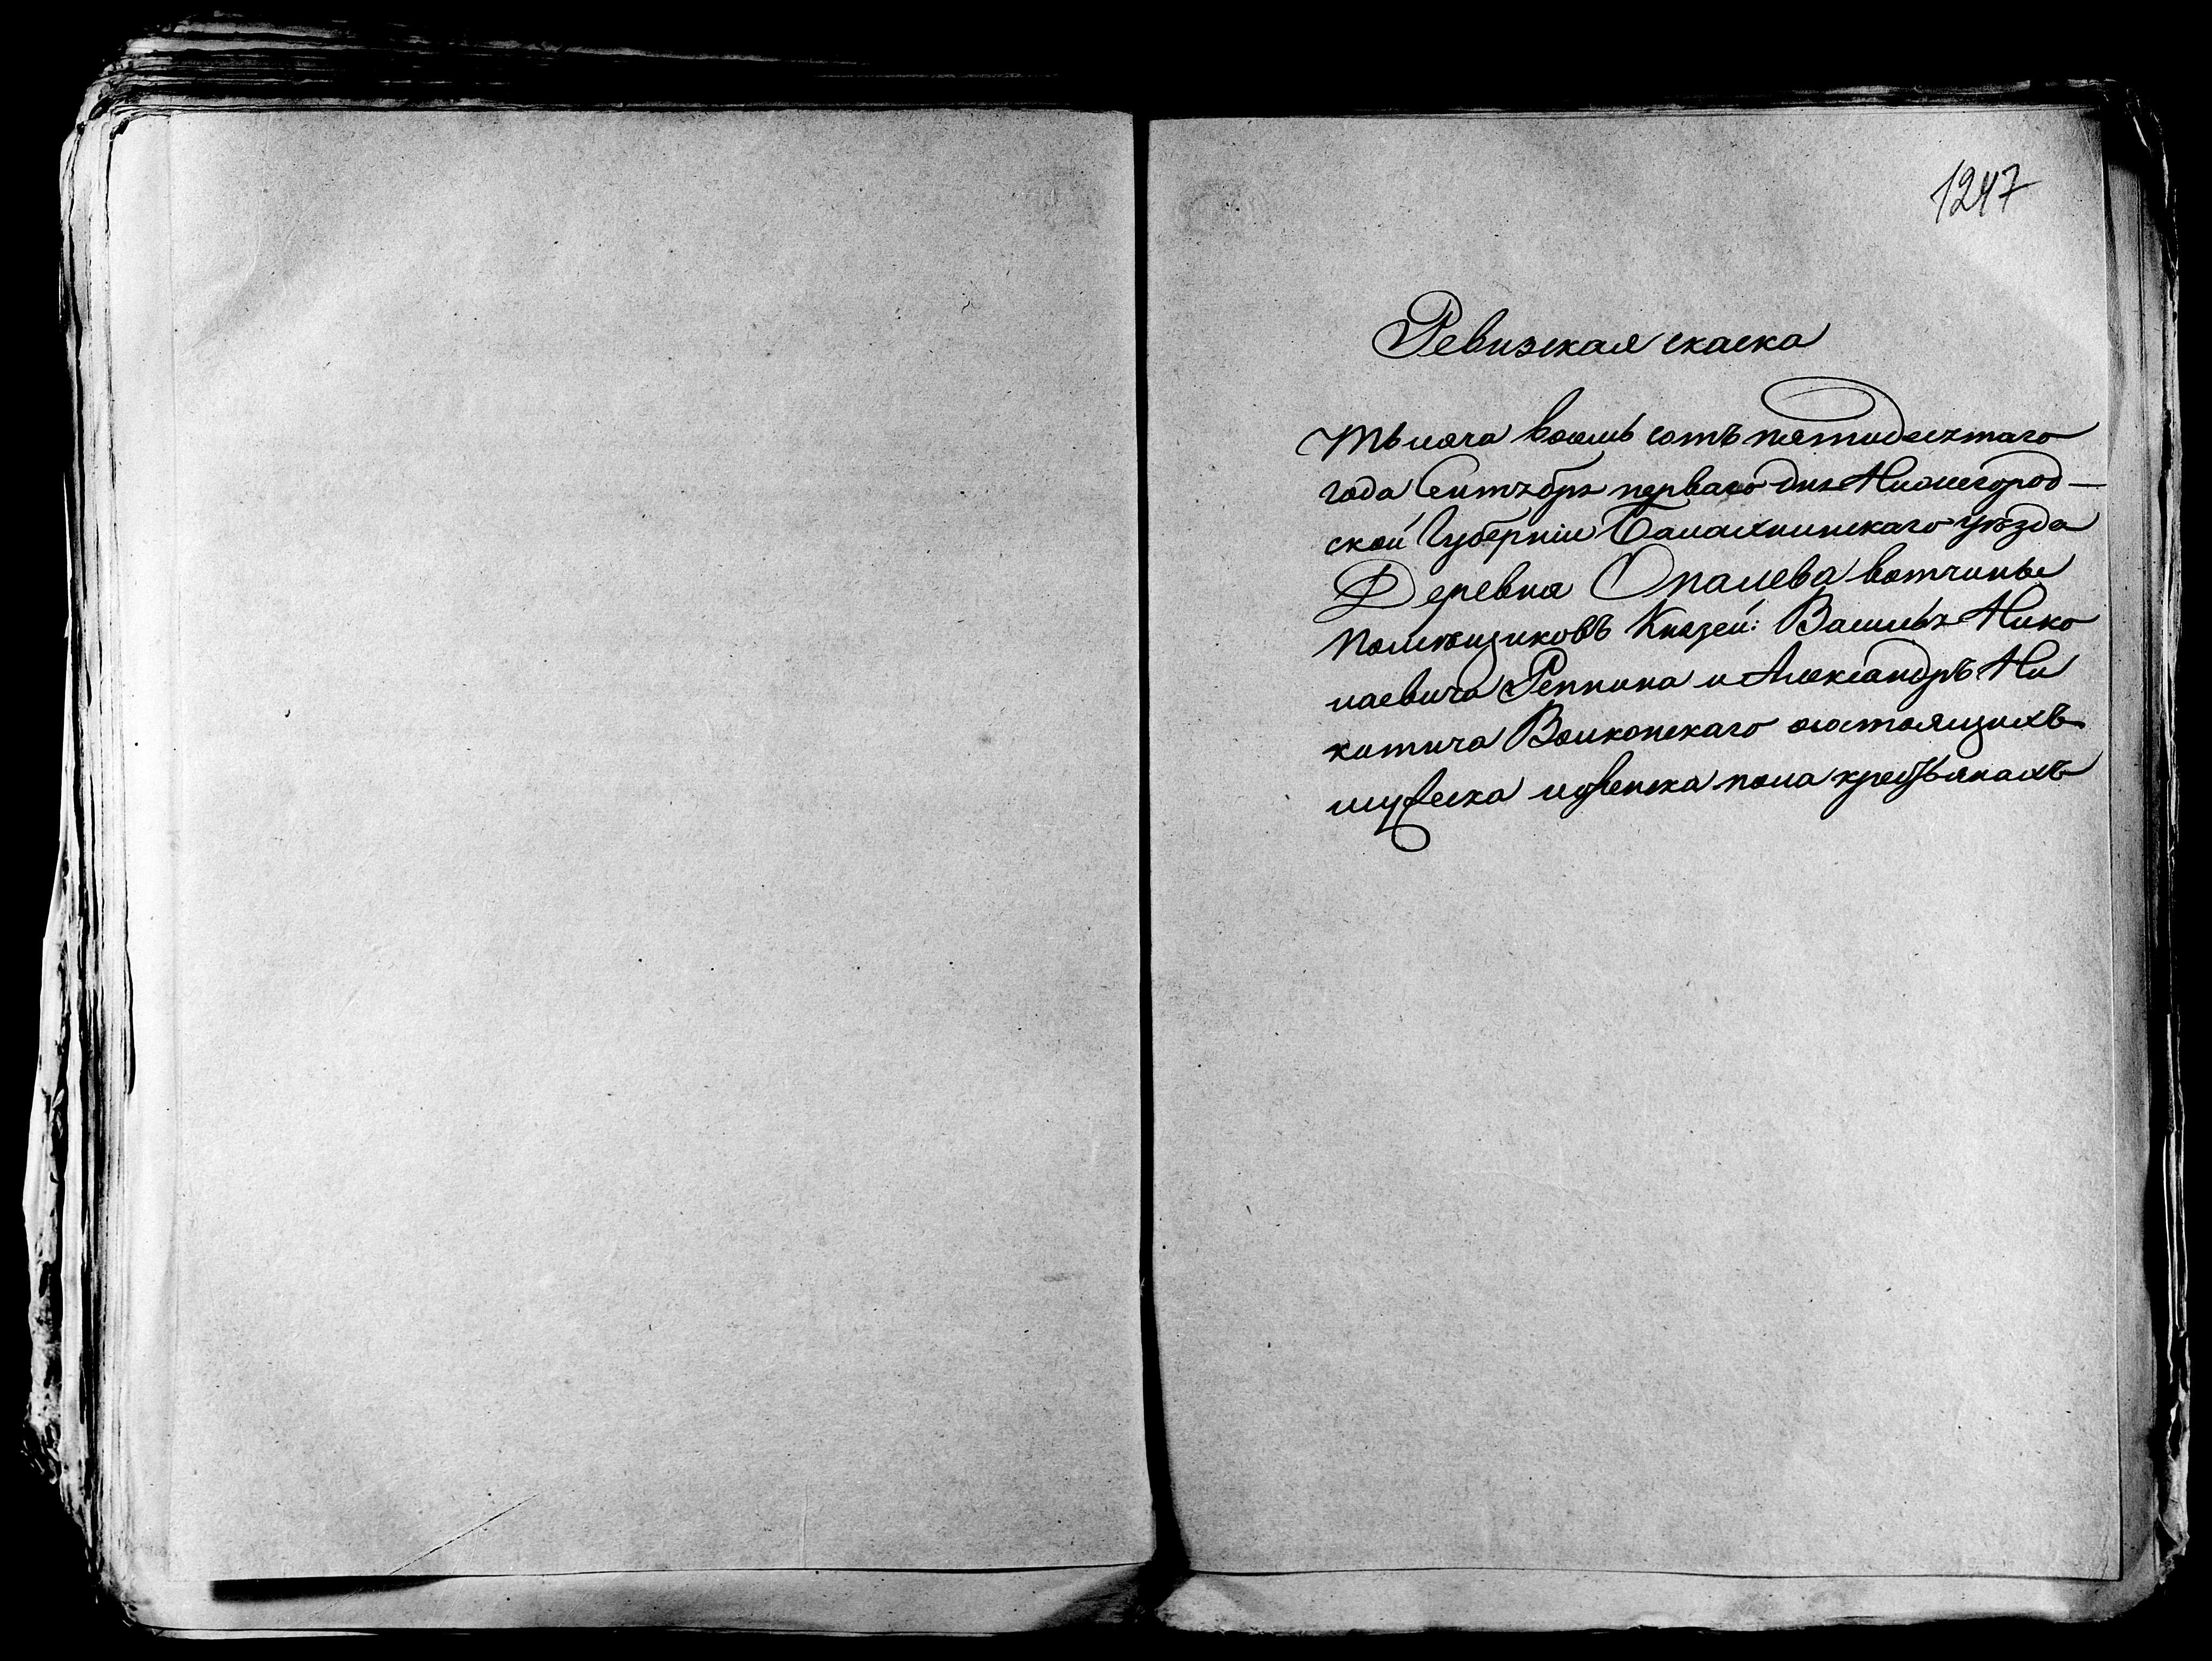 1247
Ревизская скаска
Тысяча восемь сотъ пятидесятаго
года Сентября перваго дня Нижегород-
ской Губерніи Балахнинскаго уѣзда
Деревня Опалева вотчины
помѣщиковъ Князей: Василья Нико
лаевича Репнина и Александръ Ни
китича Волконскаго состоящихъ
мужеска и женска пола крестьянахъ